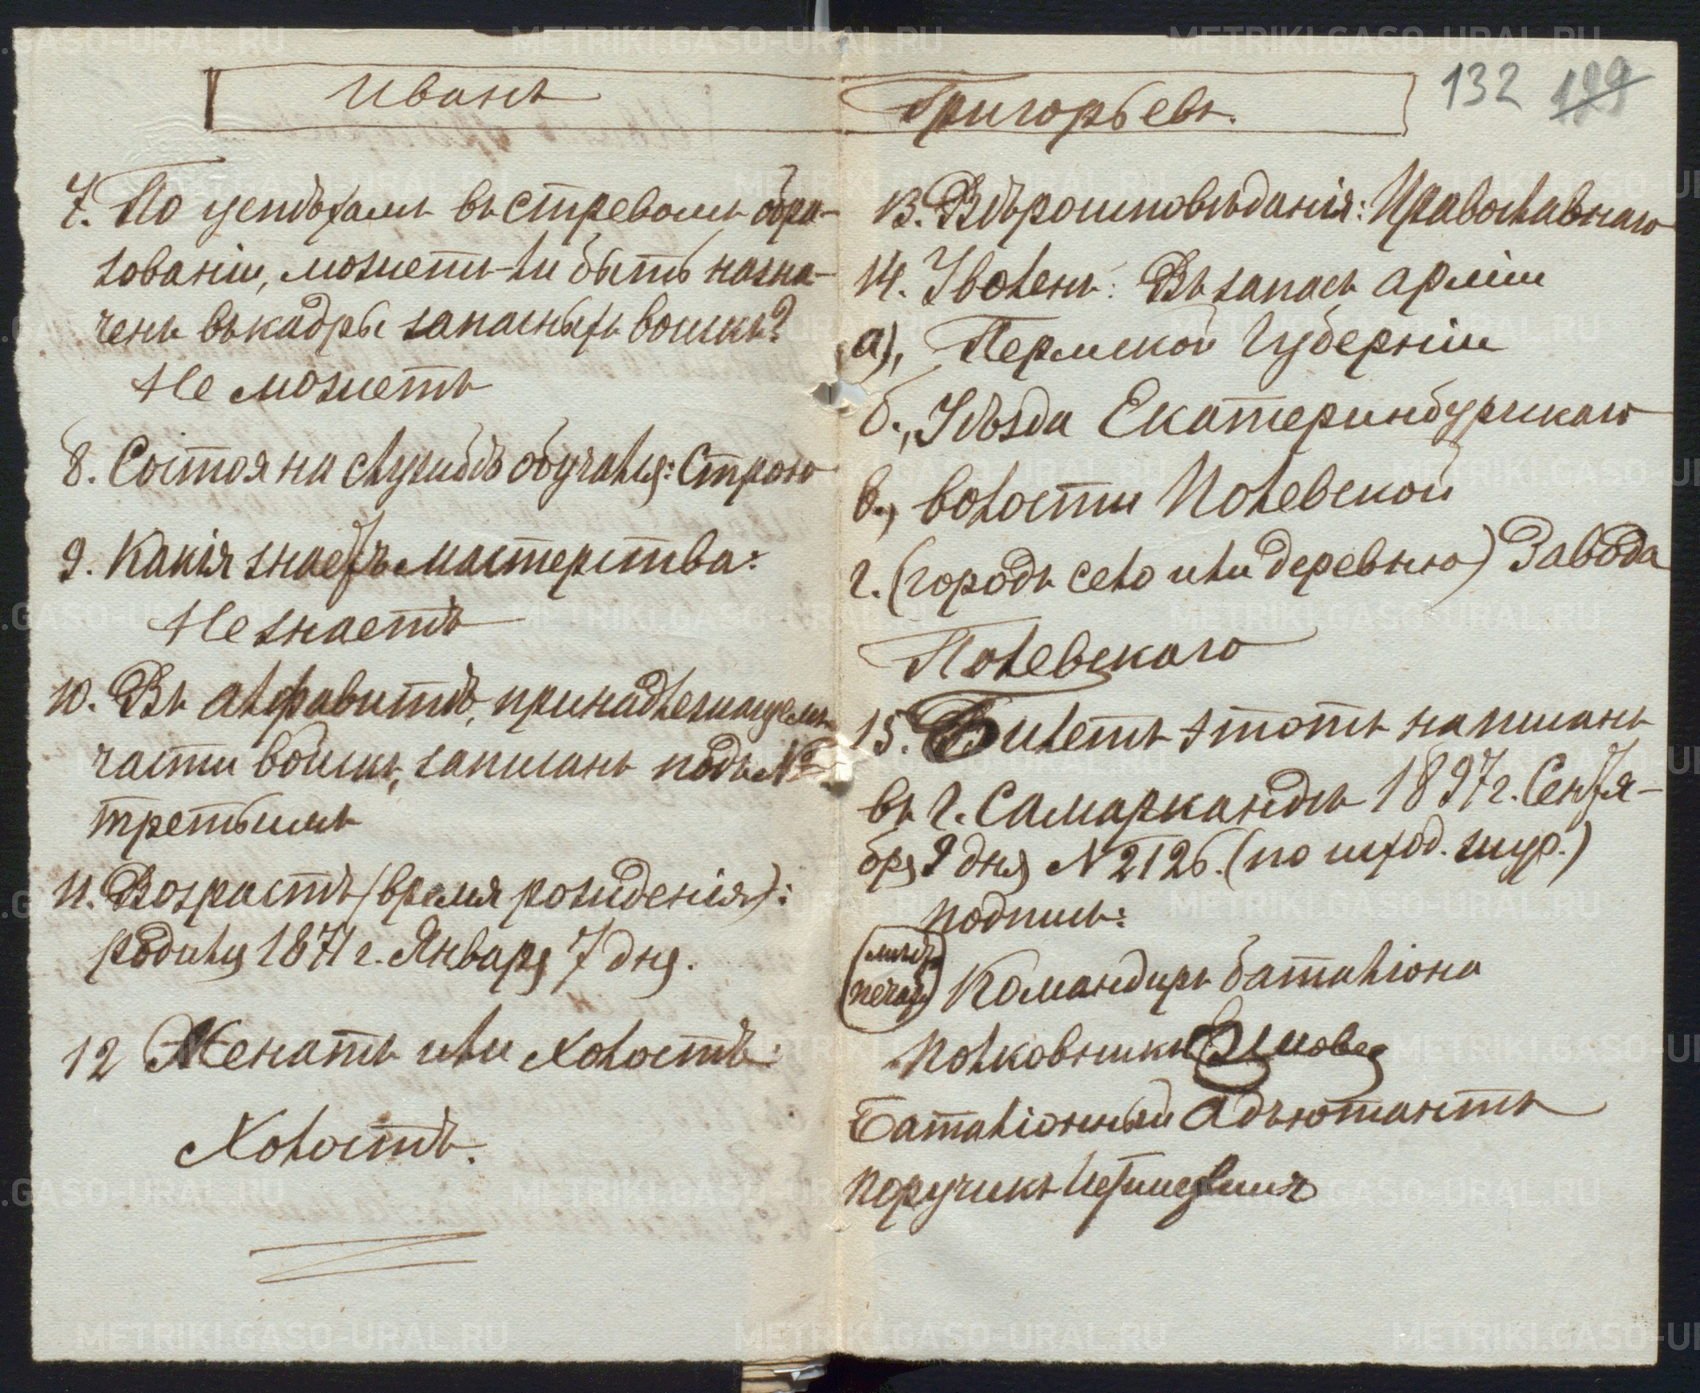 Иванъ
7. По успѣхамъ въ строевомъ обра-
зованіи, можетъ-ли быть назна-
ченъ въ кадры запасныхъ войскъ?
Не можетъ
8. Состоя на службѣ обучался: Строю
9. Какія знаетъ мастерства:
Не знаетъ
10. Въ алфавитѣ, принадлежащемъ
части войскъ, записанъ подъ №
третьимъ
11. Возрастъ (время рожденія):
родился 1871 г. Января 7 дня.
12 Женатъ или холостъ:
Холостъ.
Григорьевъ.
132 129
13. Вѣроисповѣданія: Православнаго
14. Уволенъ: Въ запасъ арміи
а), Пермской Губерніи
б., Уѣзда Екатеринбургскаго
в., волости Полевской
г. (городъ село или деревню) Завода
Полевскаго
15. Билетъ этотъ написанъ
въ г. Самаркандѣ 1897 г. Сентя-
бря 9 дня № 2126. (по исход. жур.)
подписъ:
(мѣсто
печати) Командиръ баталіона
полковникъ
Баталіонный Адъютантъ
поручикъ